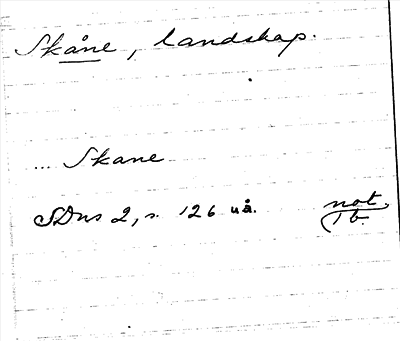 Skåne, landskap.
... Skane
SDns 2, s. 126 uå.
not.
Tb.